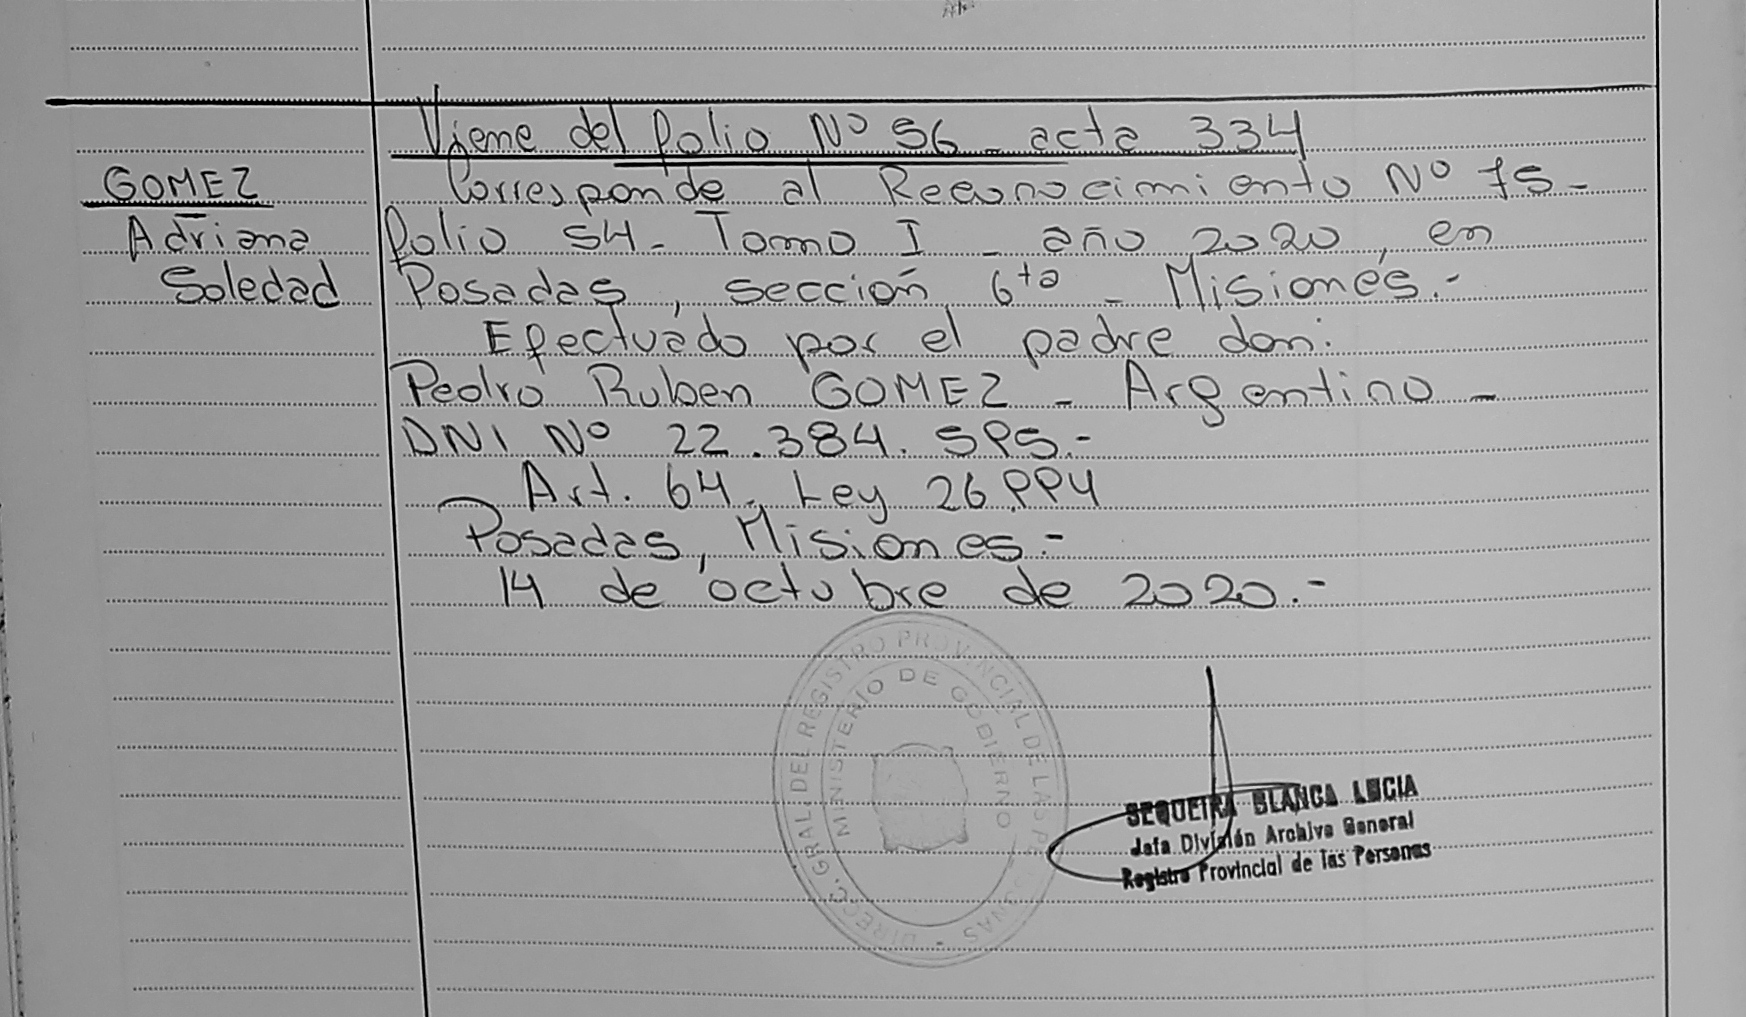 Viene del folio Nº 56 - acta 334
GOMEZ
Adriana
Soledad
Corresponde al Reconocimiento Nº 75 -
folio 54 - Tomo I - año 2020, en
Posadas, sección 6ta - Misiones.-
Efectuado por el padre don:
Pedro Ruben GOMEZ - Argentino -
DNI Nº 22.384.595.-
Art. 64, Ley 26.994
Posadas, Misiones.-
14 de octubre de 2020.-
DIRECC. GRAL. DEL REGISTRO PROVINCIAL DE LAS PERSONAS
MINISTERIO DE GOBIERNO
SEQUEIRA BLANCA LUCIA
Jefa División Archivo General
Registro Provincial de las Personas